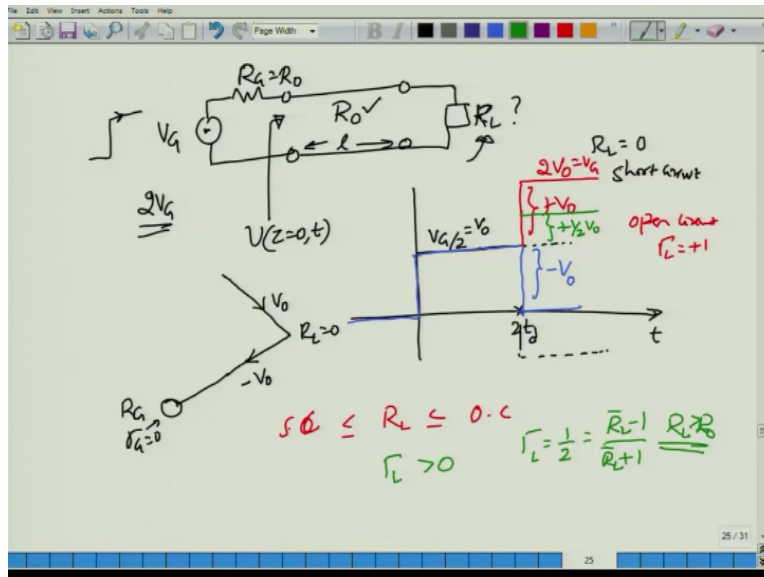 File Edit View Insert Actions Tools Help
Page Width
B I
R_G=R_0
V_G
R_0 ✓
← l →
R_L ?
2V_G
V(z=0,t)
R_L=0
short circuit
2V_0=V_G
+V_0
+1/2 V_0
open circuit
Γ_L=+1
V_G/2=V_0
-V_0
2t_d
t
V_0
R_L=0
-V_0
R_G
Γ_G=0
≤ R_L ≤ O.C
Γ_L >0
Γ_L=1/2=(R̄_L-1)/(R̄_L+1) R_L>R_0
25 / 31
25